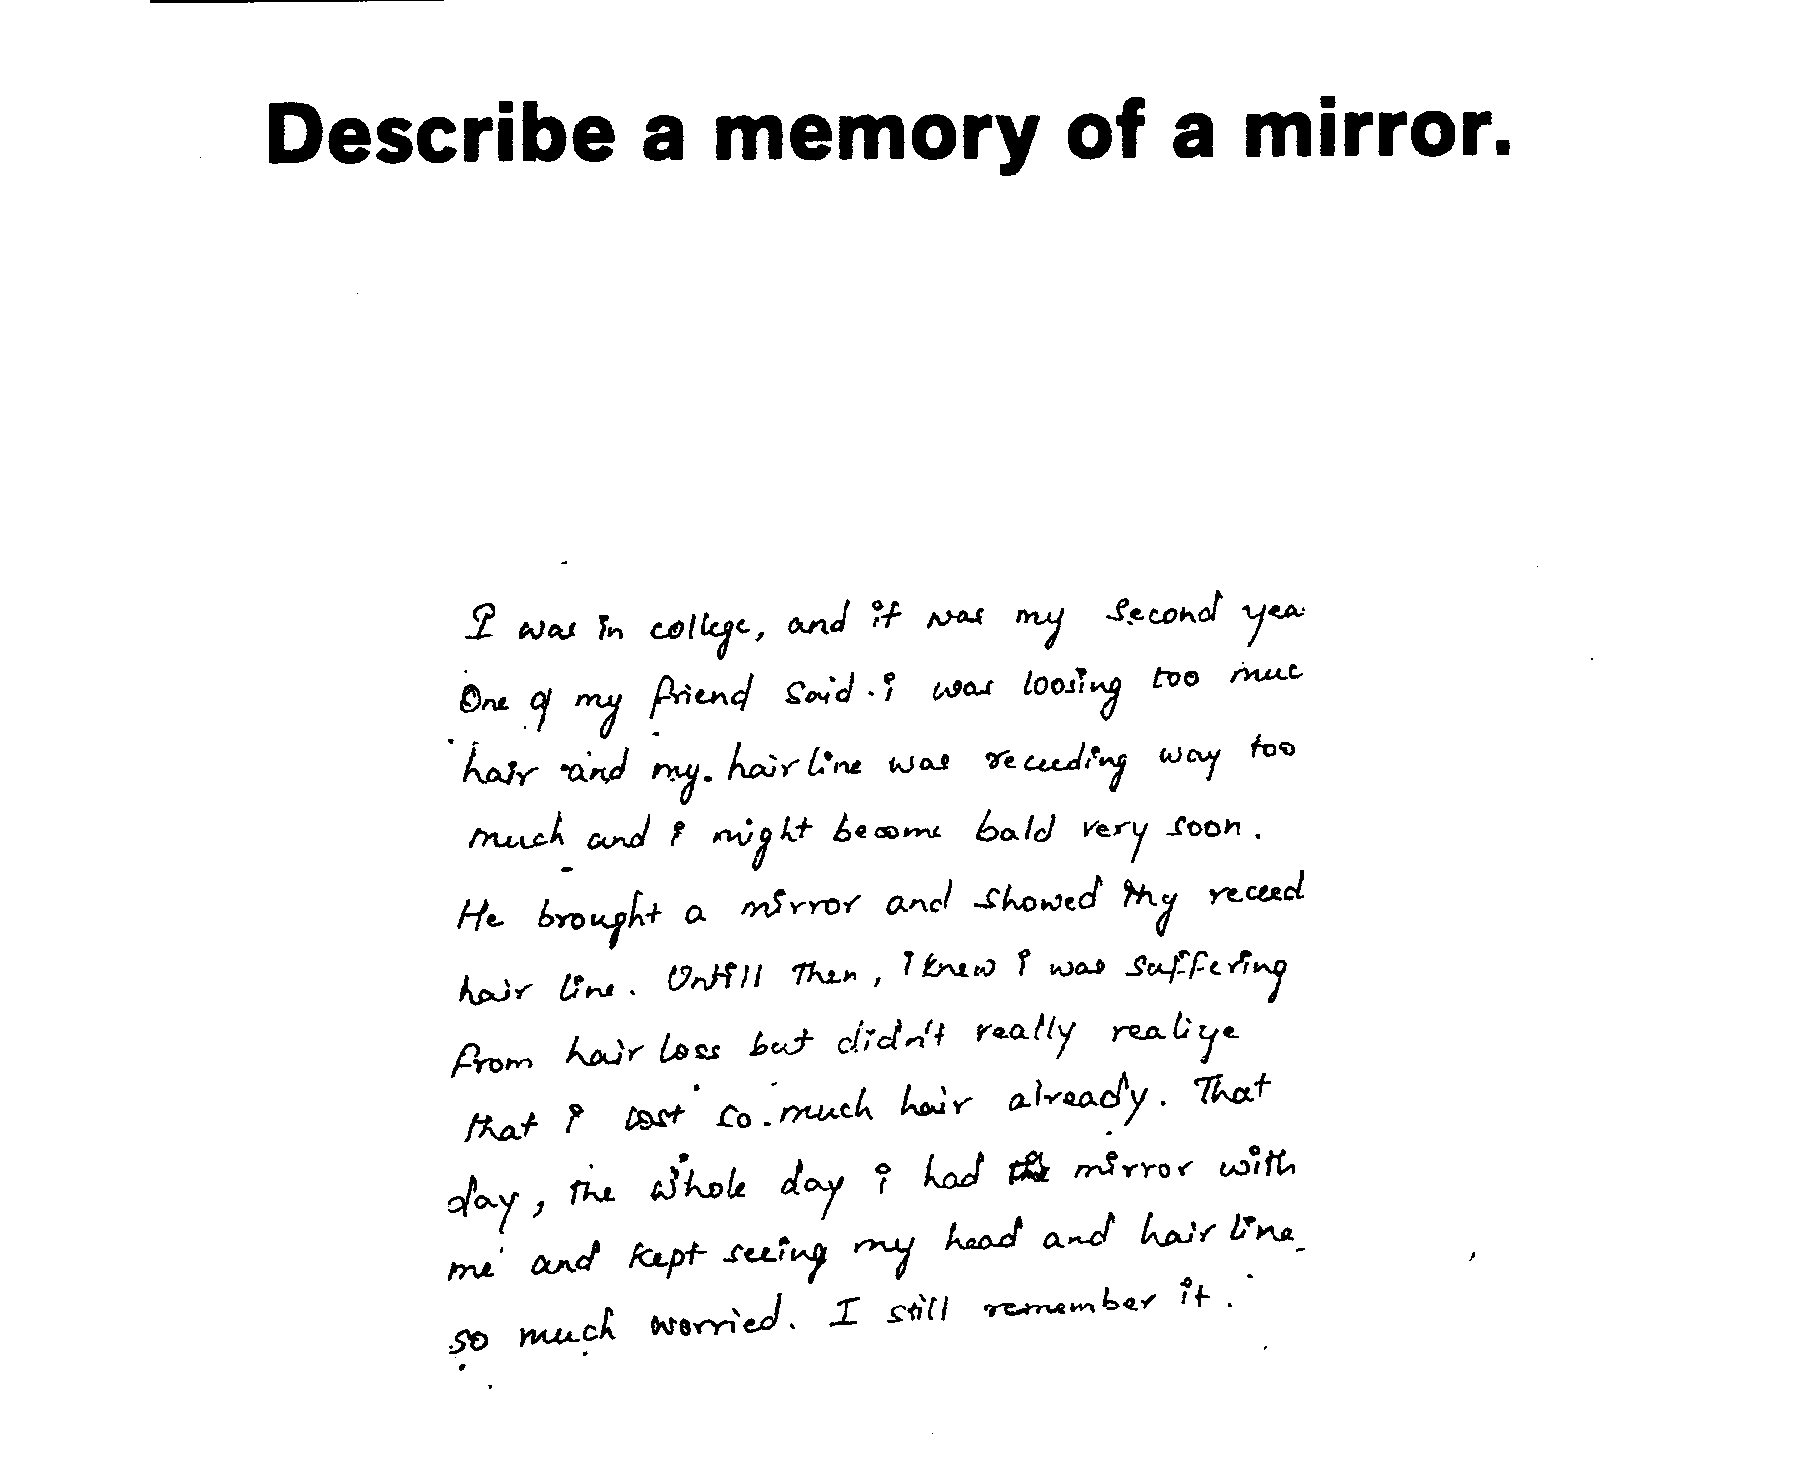 Describe a memory of a mirror.
I was in college, and it was my second yea
One of my friend said. i was loosing too muc
hair and my. hair line was receeding way too
much and i might become bald very soon.
He brought a mirror and showed my receed
hair line. Untill then, i knew i was suffering
from hair loss but didn't really realize
that i lost so much hair already. That
day, the whole day i had the mirror with
me and kept seeing my head and hair line
so much worried. I still remember it.